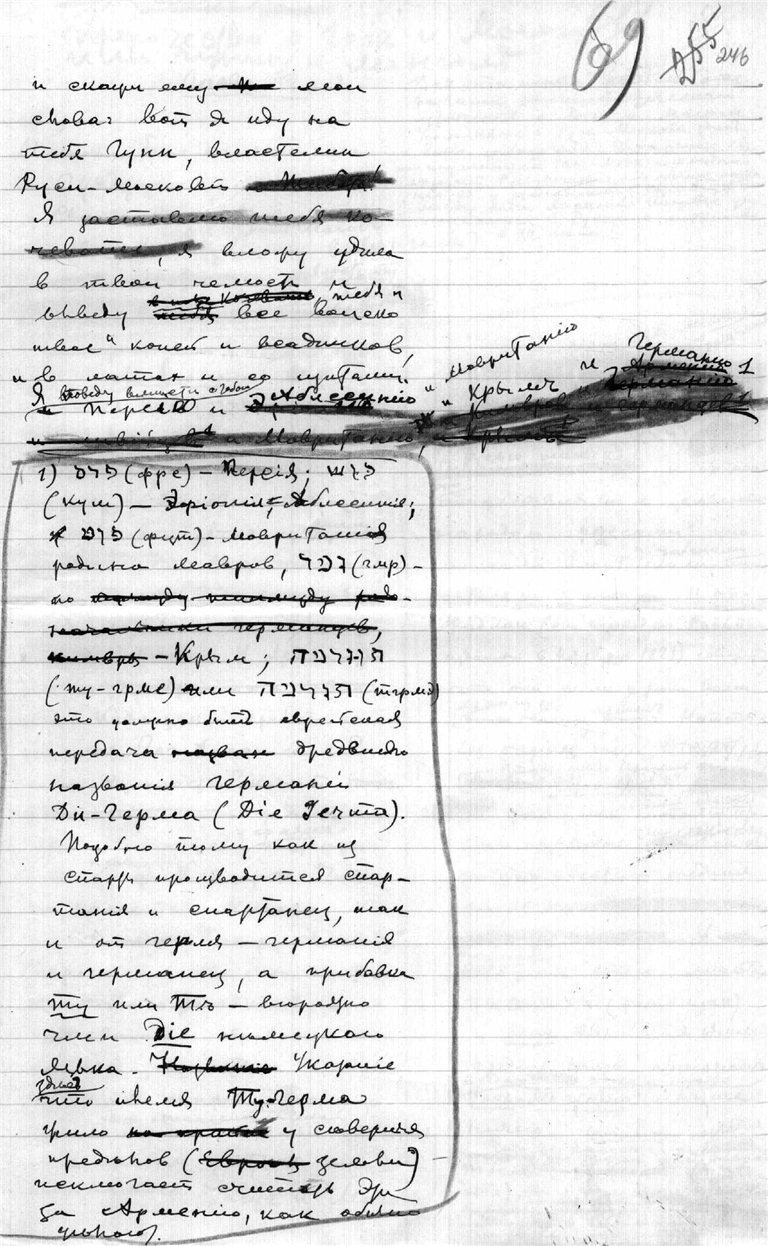 69
255
246
и скажи ему мои
слова: вот я иду на
тебя Гунн, властелин
Руси-Московъ
Я заставлю тебя ко-
чевать, я вложу удила
в твои челюсти и
выведу тебя и все войско
твое коней и всадников,
и в латах и со щитами.
Я выведу вместе с тобою
и Персию и Абиссинию и Мавританию и Крымъ и Германию 1
1) פרס (фрс) – Персія; כוש
(куш) – Эфіопія, Абиссинія;
פוט (фут) – Мавританія
родина мавров, גמר (гмр) –
Крым; תוגרמה
(ту-грме) или תגרמה (тгрмэ)
это должно быть еврейская
передача древняго
названія Германіи
Ди-Герма (Die Germa).
Подобно тому как из
спарты производится спар-
танія и спартанец, так
и от герма – германія
и германец, а прибавка
ту или тъ – вероятно
член Die нѣмецкого
языка. Указаніе
здѣсь что племя Ту-Герма
жило у северных
предѣлов (земли)
исключает считать
за Арменію, как обычно